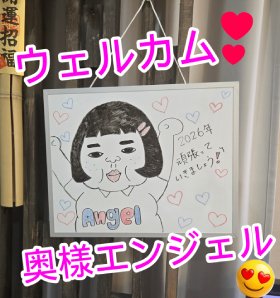 開運招福
ウェルカム
2026年
頑張って
いきましょう!
Angel
奥様エンジェル